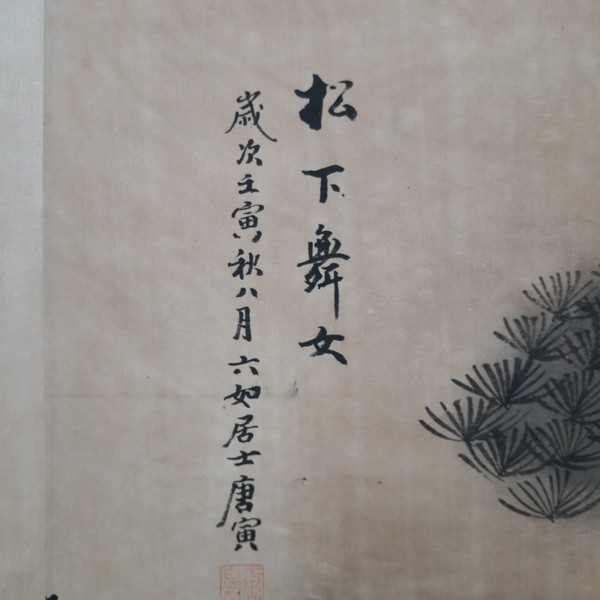 松下舞女
歲次壬寅秋八月六如居士唐寅